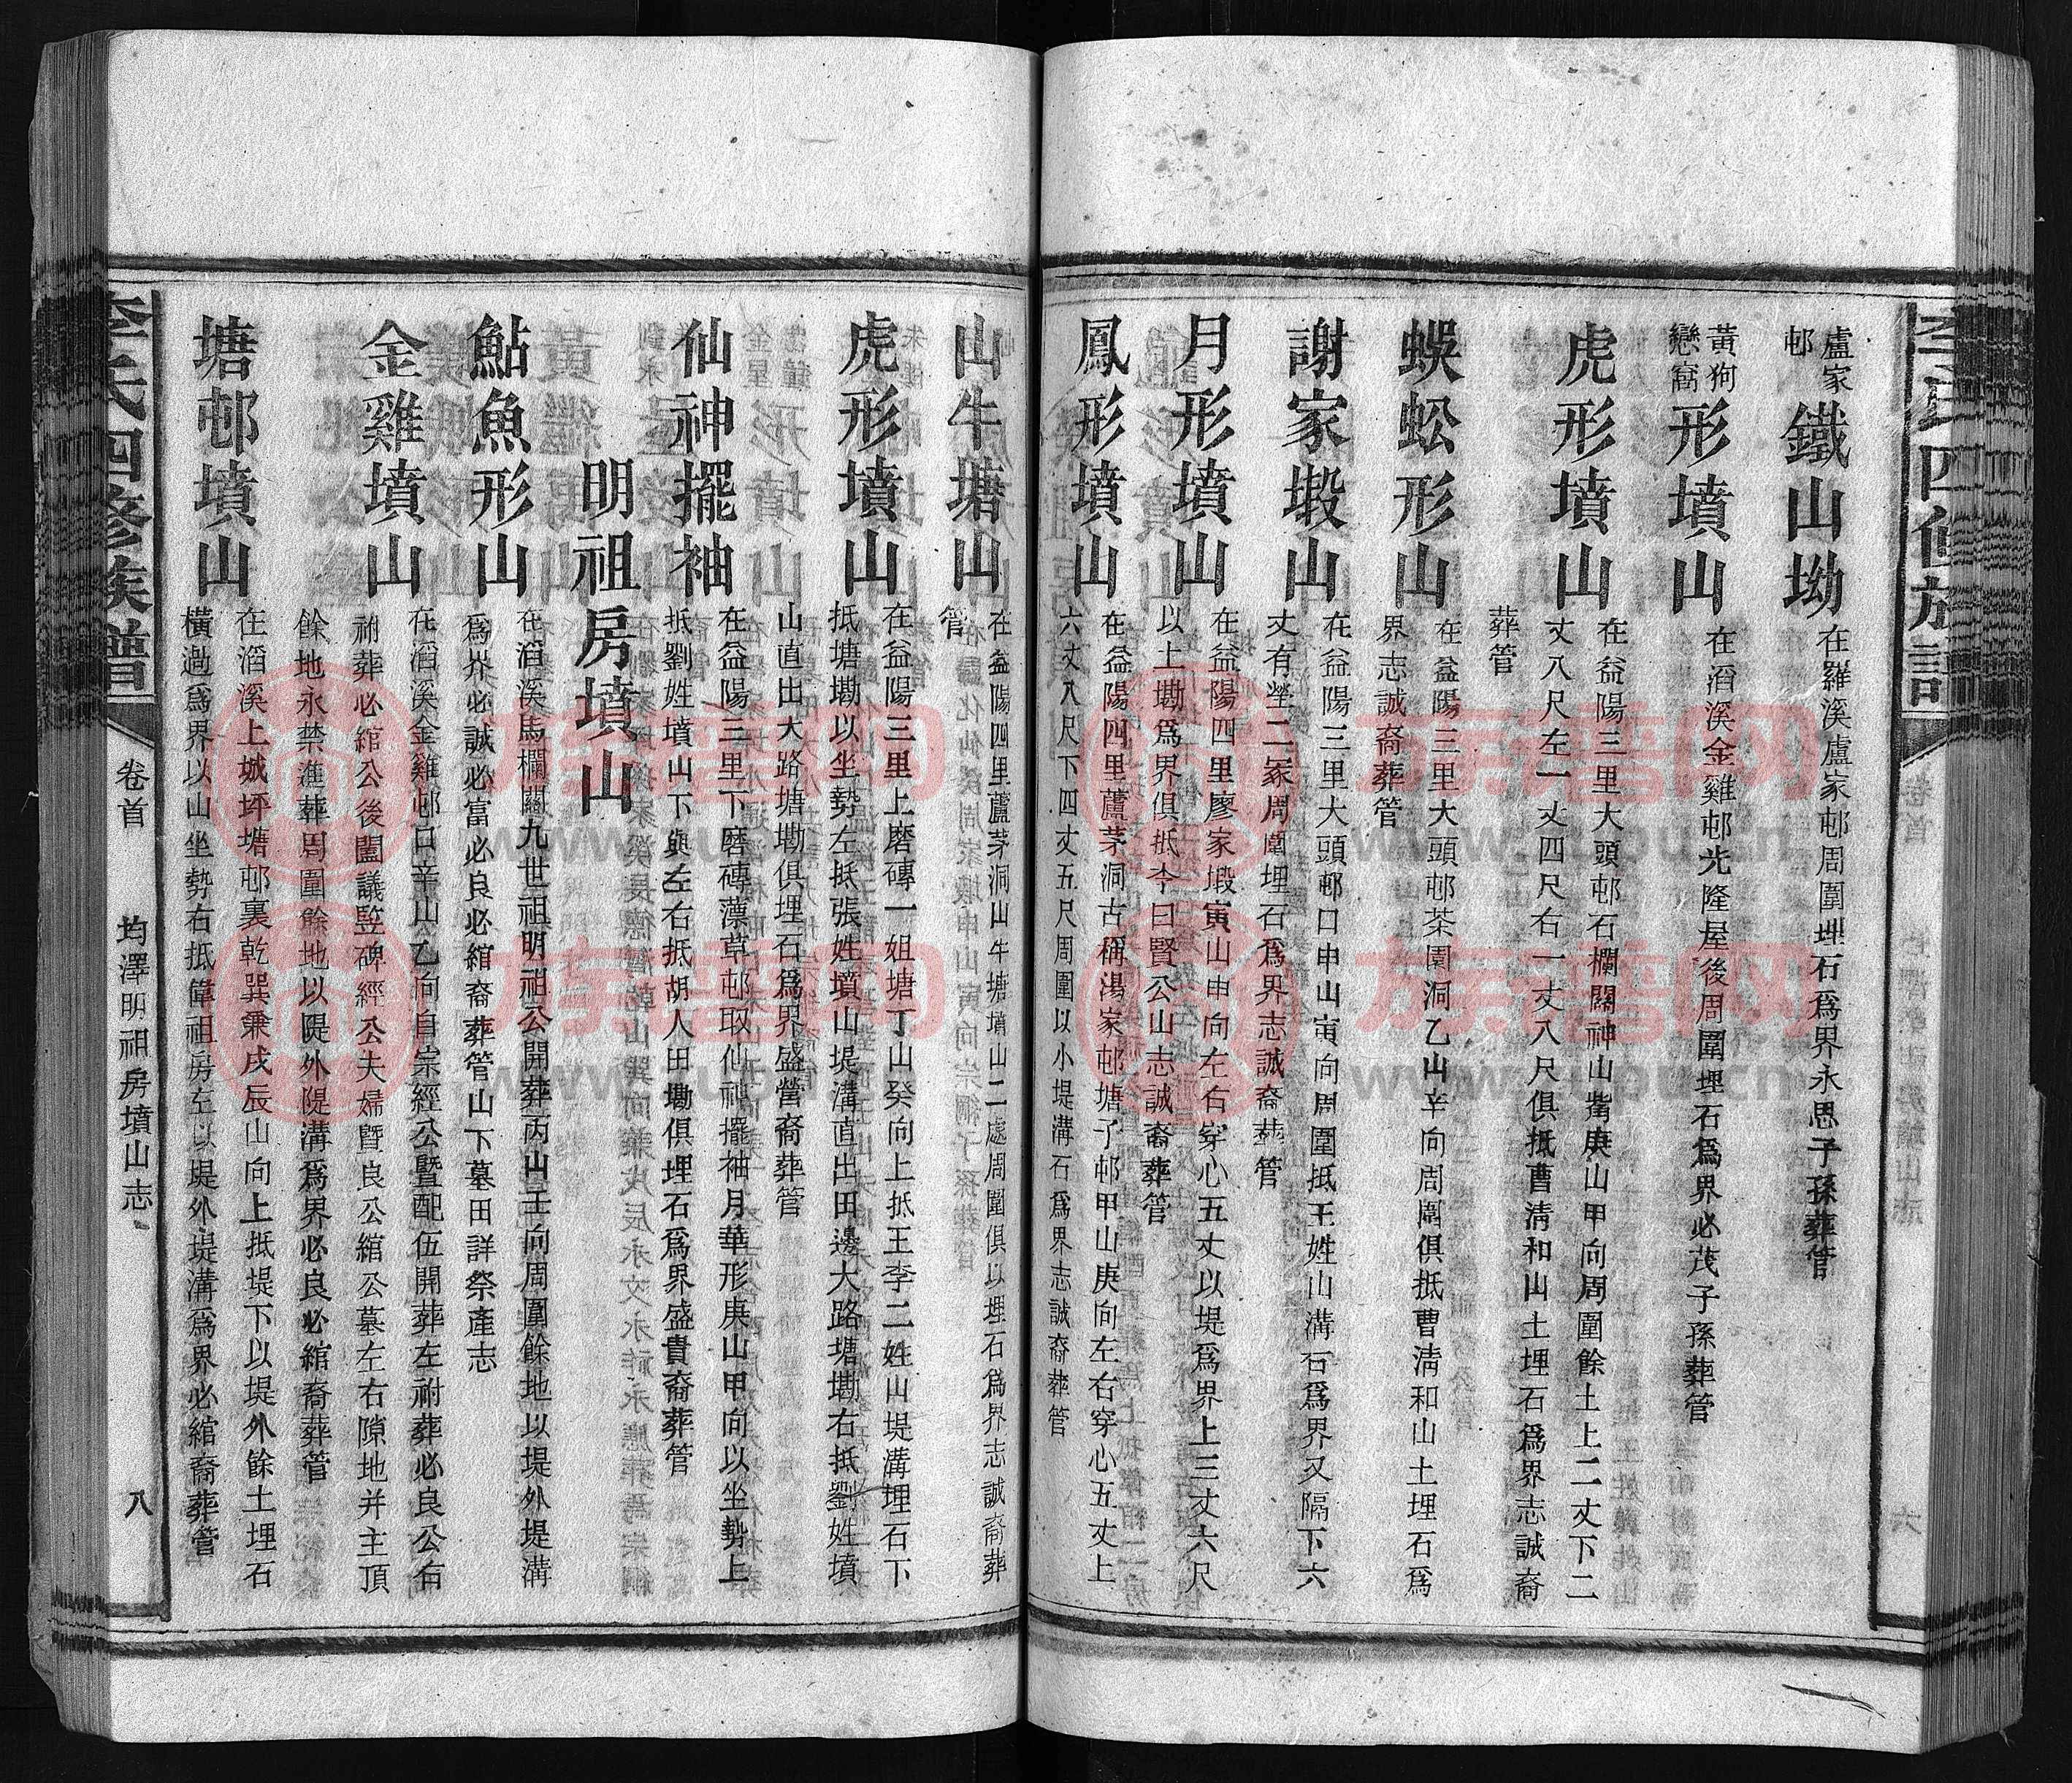 盧家邨鐵山坳
在羅溪盧家邨周圍埋石爲界永思子孫葬管
黃狗戀窩形墳山
在滔溪金雞邨光隆屋後周圍埋石爲界必茂子孫葬管
虎形墳山
在益陽三里大頭邨石欄關神山嘴庚山甲向周圍餘土上二丈下二
丈八尺左一丈四尺右一丈八尺俱抵曹淸和山土埋石爲界志誠裔
葬管
蜈蚣形山
在益陽三里大頭邨茶園洞乙山辛向周圍俱抵曹淸和山土埋石爲
界志誠裔葬管
謝家塅山
在益陽三里大頭邨口申山寅向周圍抵王姓山溝石爲界又隔下六
丈有塋二冢周圍埋石爲界志誠裔葬管
月形墳山
在益陽四里廖家塅寅山申向左右穿心五丈以堤爲界上三丈六尺
以上墈爲界俱抵李曰賢公山志誠裔葬管
鳳形墳山
在益陽四里蘆茅洞古稱湯家邨塘子邨甲山庚向左右穿心五丈上
六丈八尺下四丈五尺周圍以小堤溝石爲界志誠裔葬管
山牛塘山
在益陽四里蘆茅洞山牛塘墳山二處周圍俱以埋石爲界志誠裔葬
管
虎形墳山
在益陽三里上磨磚一姐塘丁山癸向上抵王李二姓山堤溝埋石下
抵塘墈以坐勢左抵張姓墳山堤溝直出田邊大路塘墈右抵劉姓墳
山直出大路塘墈俱埋石爲界盛營裔葬管
仙神擺袖
在益陽三里下磨磚薸草邨取仙神擺袖月華形庚山甲向以坐勢上
抵劉姓墳山下與左右抵胡人田墈俱埋石爲界盛貴裔葬管
明祖房墳山
鮎魚形山
在滔溪馬欄關九世祖明祖公開葬丙山壬向周圍餘地以堤外堤溝
爲界必誠必富必良必綰裔葬管山下墓田詳祭產志
金雞墳山
在滔溪金雞邨口辛山乙向自宗經公暨配伍開葬左祔葬必良公右
祔葬必綰公後闔議竪碑經公夫婦暨良公綰公墓左右隙地并主頂
餘地永禁進葬周圍餘地以隄外隄溝爲界必良必綰裔葬管
塘邨墳山
在滔溪上城坪塘邨裏乾巽兼戌辰山向上抵堤下以堤外餘土埋石
橫過爲界以山坐勢右抵偉祖房左以堤外堤溝爲界必綰裔葬管
李氏四修族譜
卷首
均澤明祖房墳山志
八
族谱网
www.zupu.cn